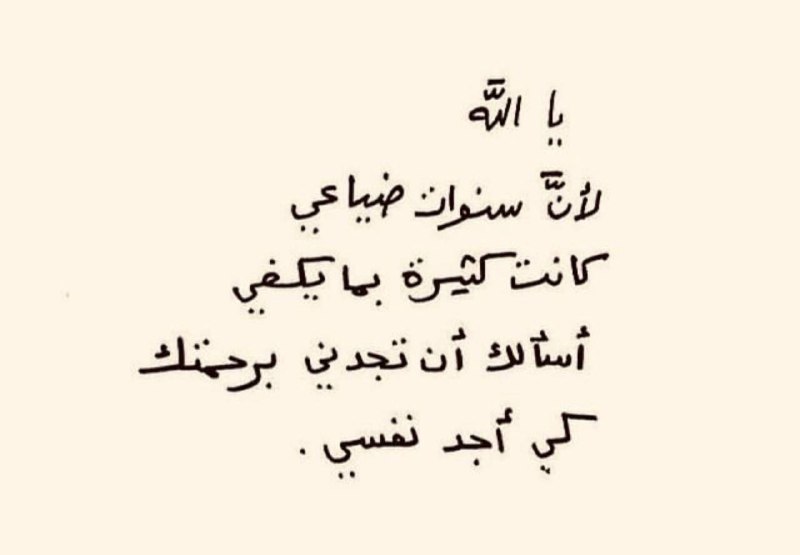 يا اللَّه
لأنَّ سنوات ضياعي
كانت كثيرة بما يكفي
أسألك أن تجدني برحمتك
كي أجد نفسي .